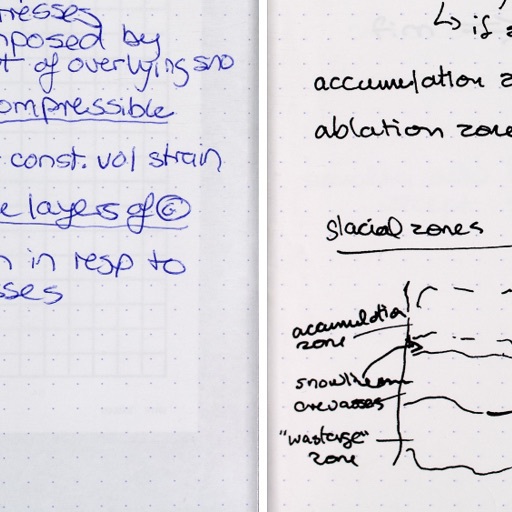 resses
posed by
t of overlying sno
ompressible
const. vol strain
e layers of G
n in resp to
sses
↳ is
accumulation z
ablation zone
glacial zones
accumulation
zone
snowline
crevasses
"wastage"
zone